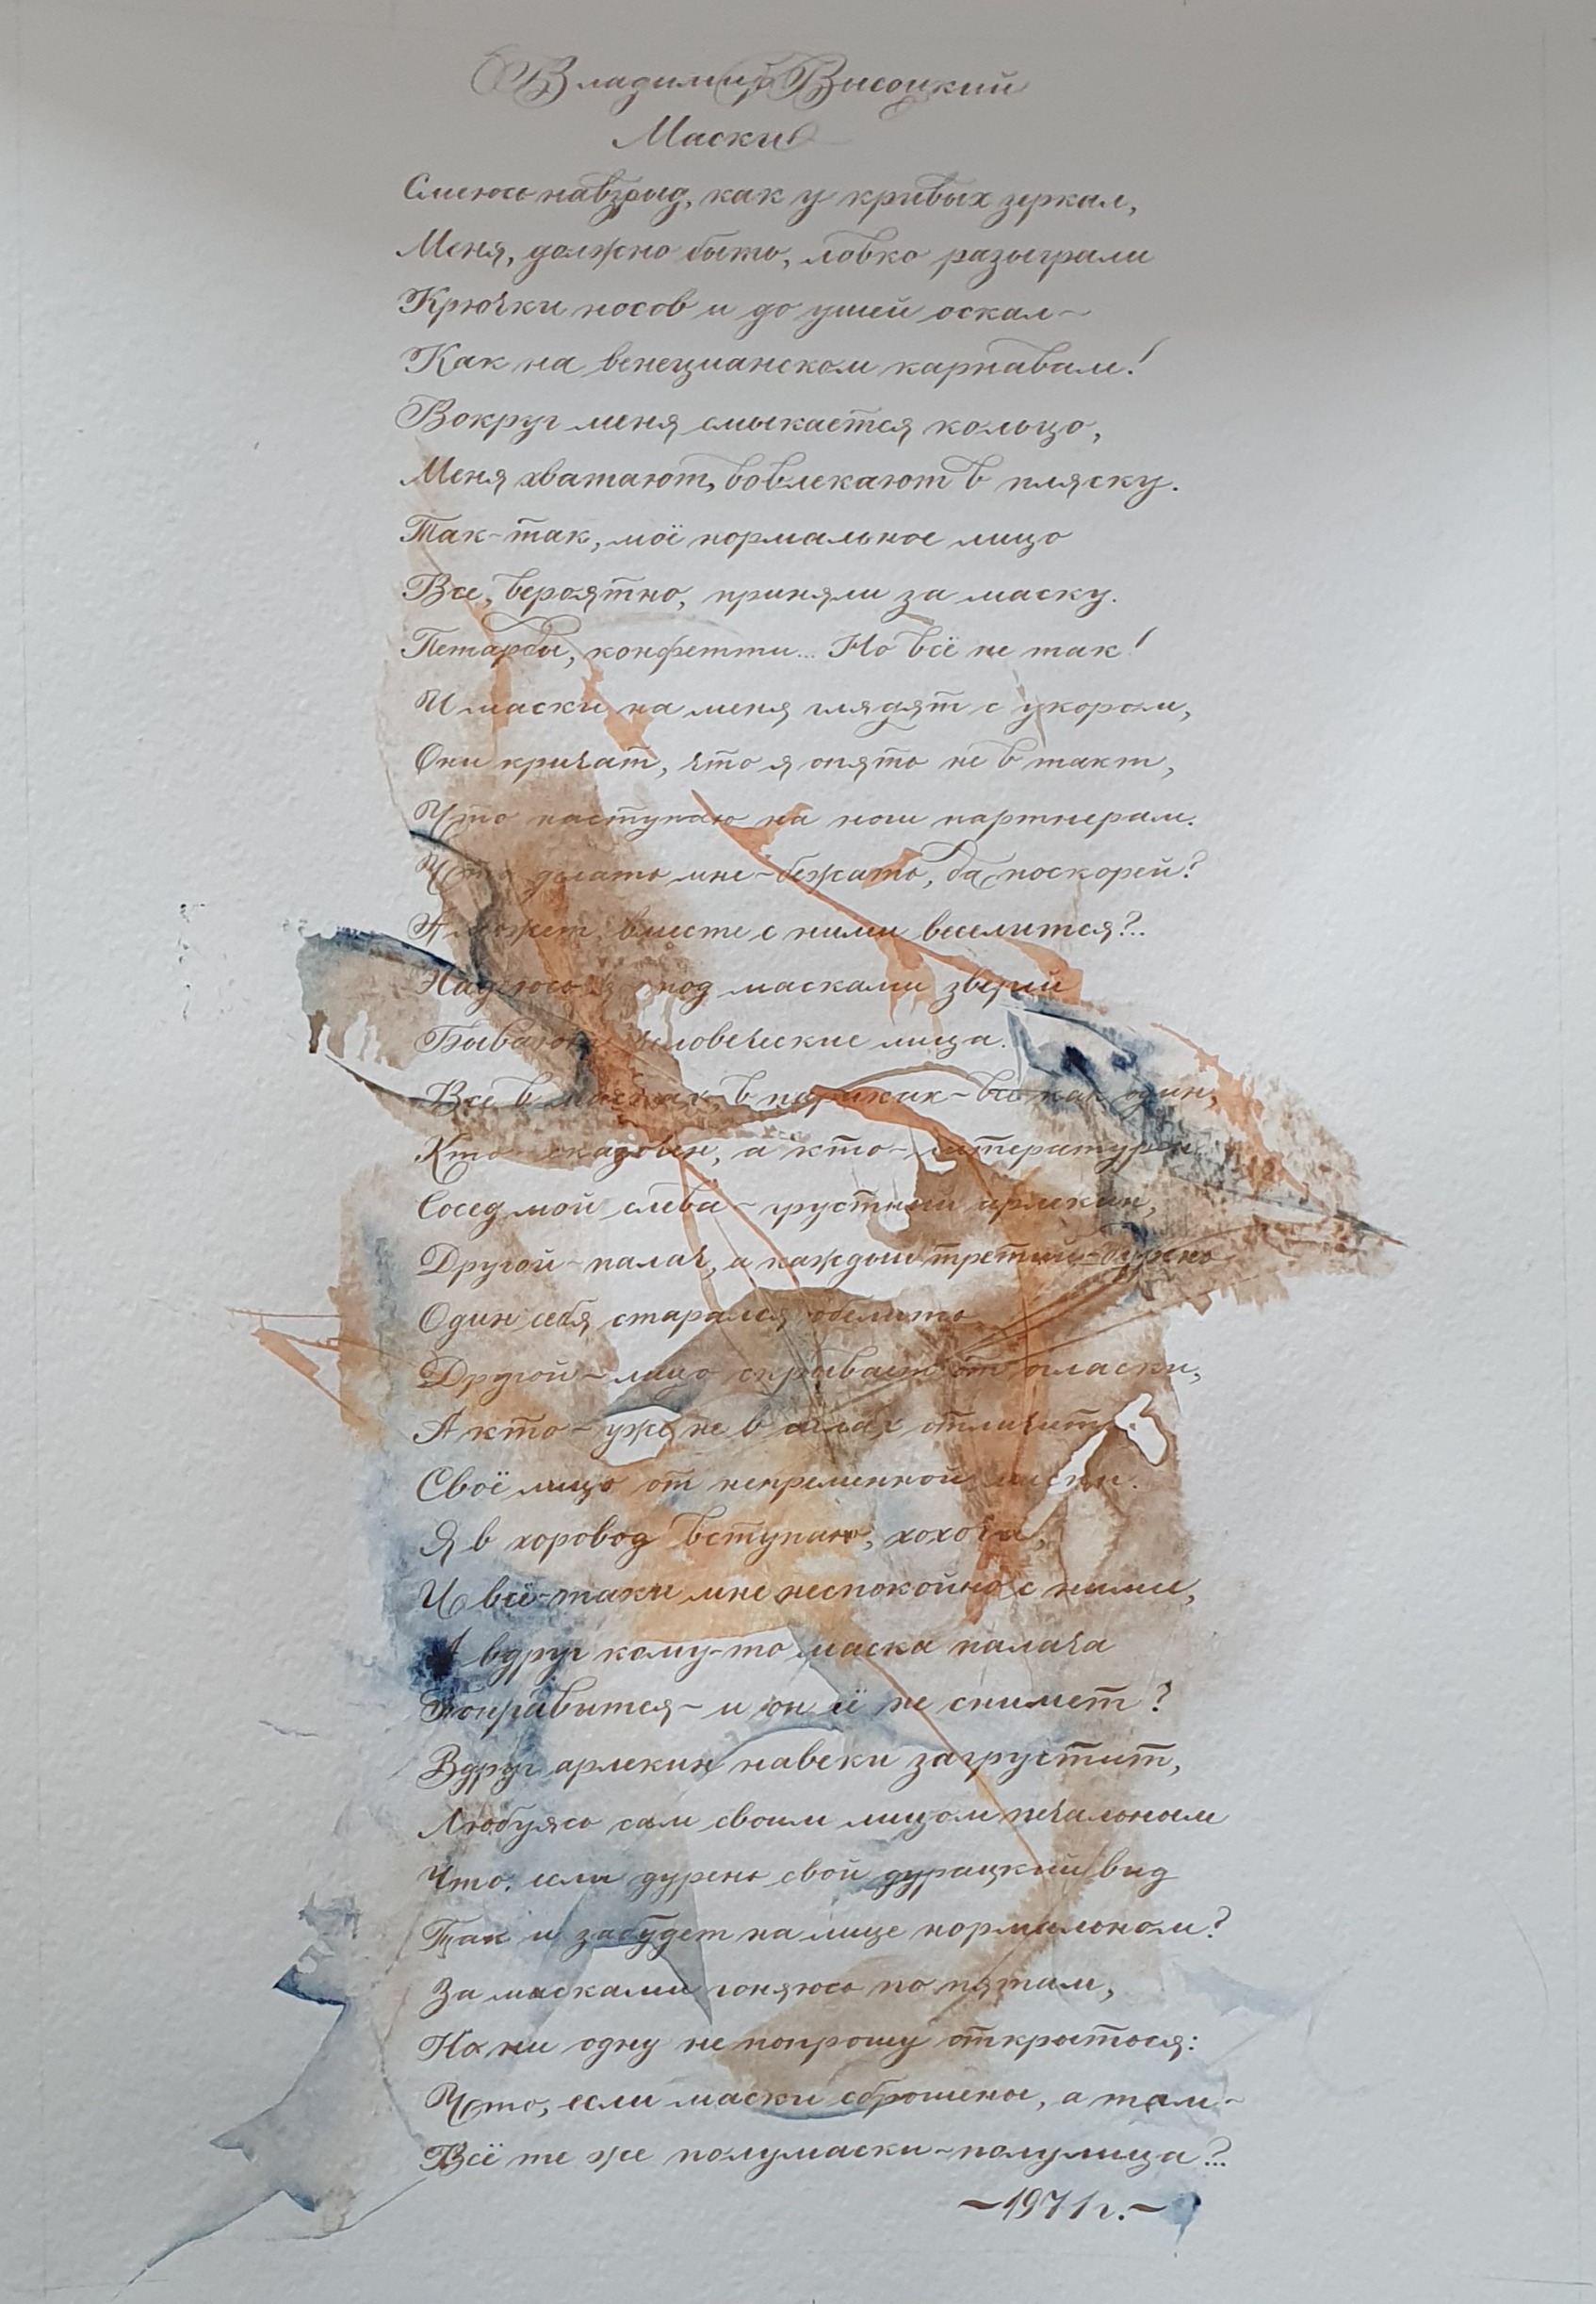 Владимир Высоцкий
Маски
Смеюсь навзрыд, как у кривых зеркал,
Меня, должно быть, ловко разыграли
Крючки носов и до ушей оскал ~
Как на венецианском карнавале!
Вокруг меня смыкается кольцо,
Меня хватают, вовлекают в пляску.
Так-так, моё нормальное лицо
Все, вероятно, приняли за маску.
Петарды, конфетти... Но всё не так!
И маски на меня глядят с укором,
Они кричат, что я опять не в такт,
Что наступаю на ноги партнерам.
Что делать мне ~ бежать, да поскорей?
А может, вместе с ними веселится?..
Надеюсь я под масками зверей
Бывают человеческие лица.
Все в масках, в париках ~ все как один,
Кто сказочен, а кто - литературен
Сосед мой слева ~ грустный арлекин,
Другой ~ палач, а каждый третий ~ дурень
Один себя старался обелить
Другой ~ лицо скрывает от огласки,
А кто ~ уже не в силах отличить
Своё лицо от непременной маски.
Я в хоровод вступаю, хохоча,
И всё-таки мне неспокойно с ними,
А вдруг кому-то маска палача
Понравится ~ и он её не снимет?
Вдруг арлекин навеки загрустит,
Любуясь сам своим лицом печальным
Что, если дурень свой дурацкий вид
Так и забудет на лице нормальном?
За масками гоняюсь по пятам,
Но ни одну не попрошу открыться:
Что, если маски сброшены, а там ~
Всё те же полумаски ~ полулица?..
~ 1971 г. ~